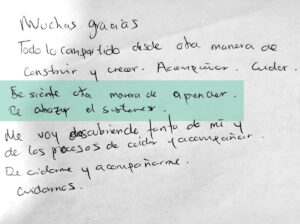 Muchas gracias
Todo lo compartido desde otra manera de
construir y crear. Acompañar. Cuidar.
Se siente otra manera de aprender.
De abrazar el sustenes.
Me voy descubriendo tanto de mi y
de los procesos de cuidar y acompañar.
De cuidarme y acompañarme.
cuidarnos.